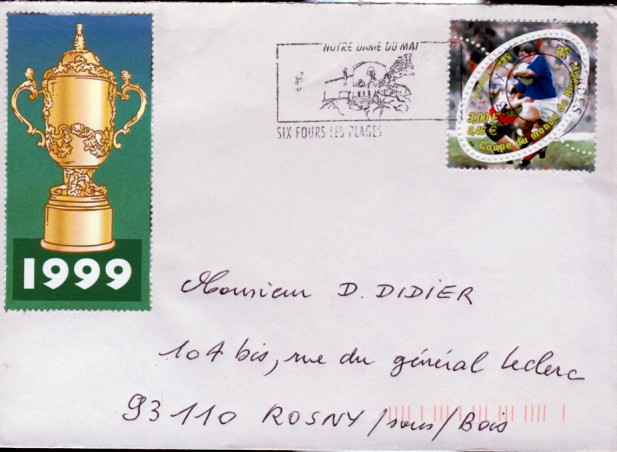 NOTRE DAME DU MAI
SIX FOURS LES PLAGES
3,00 F
0,46 €
Coupe du monde de Rugby
1999
Monsieur D. DIDIER
104 bis, rue du général Leclerc
93110 ROSNY /sous/ Bois